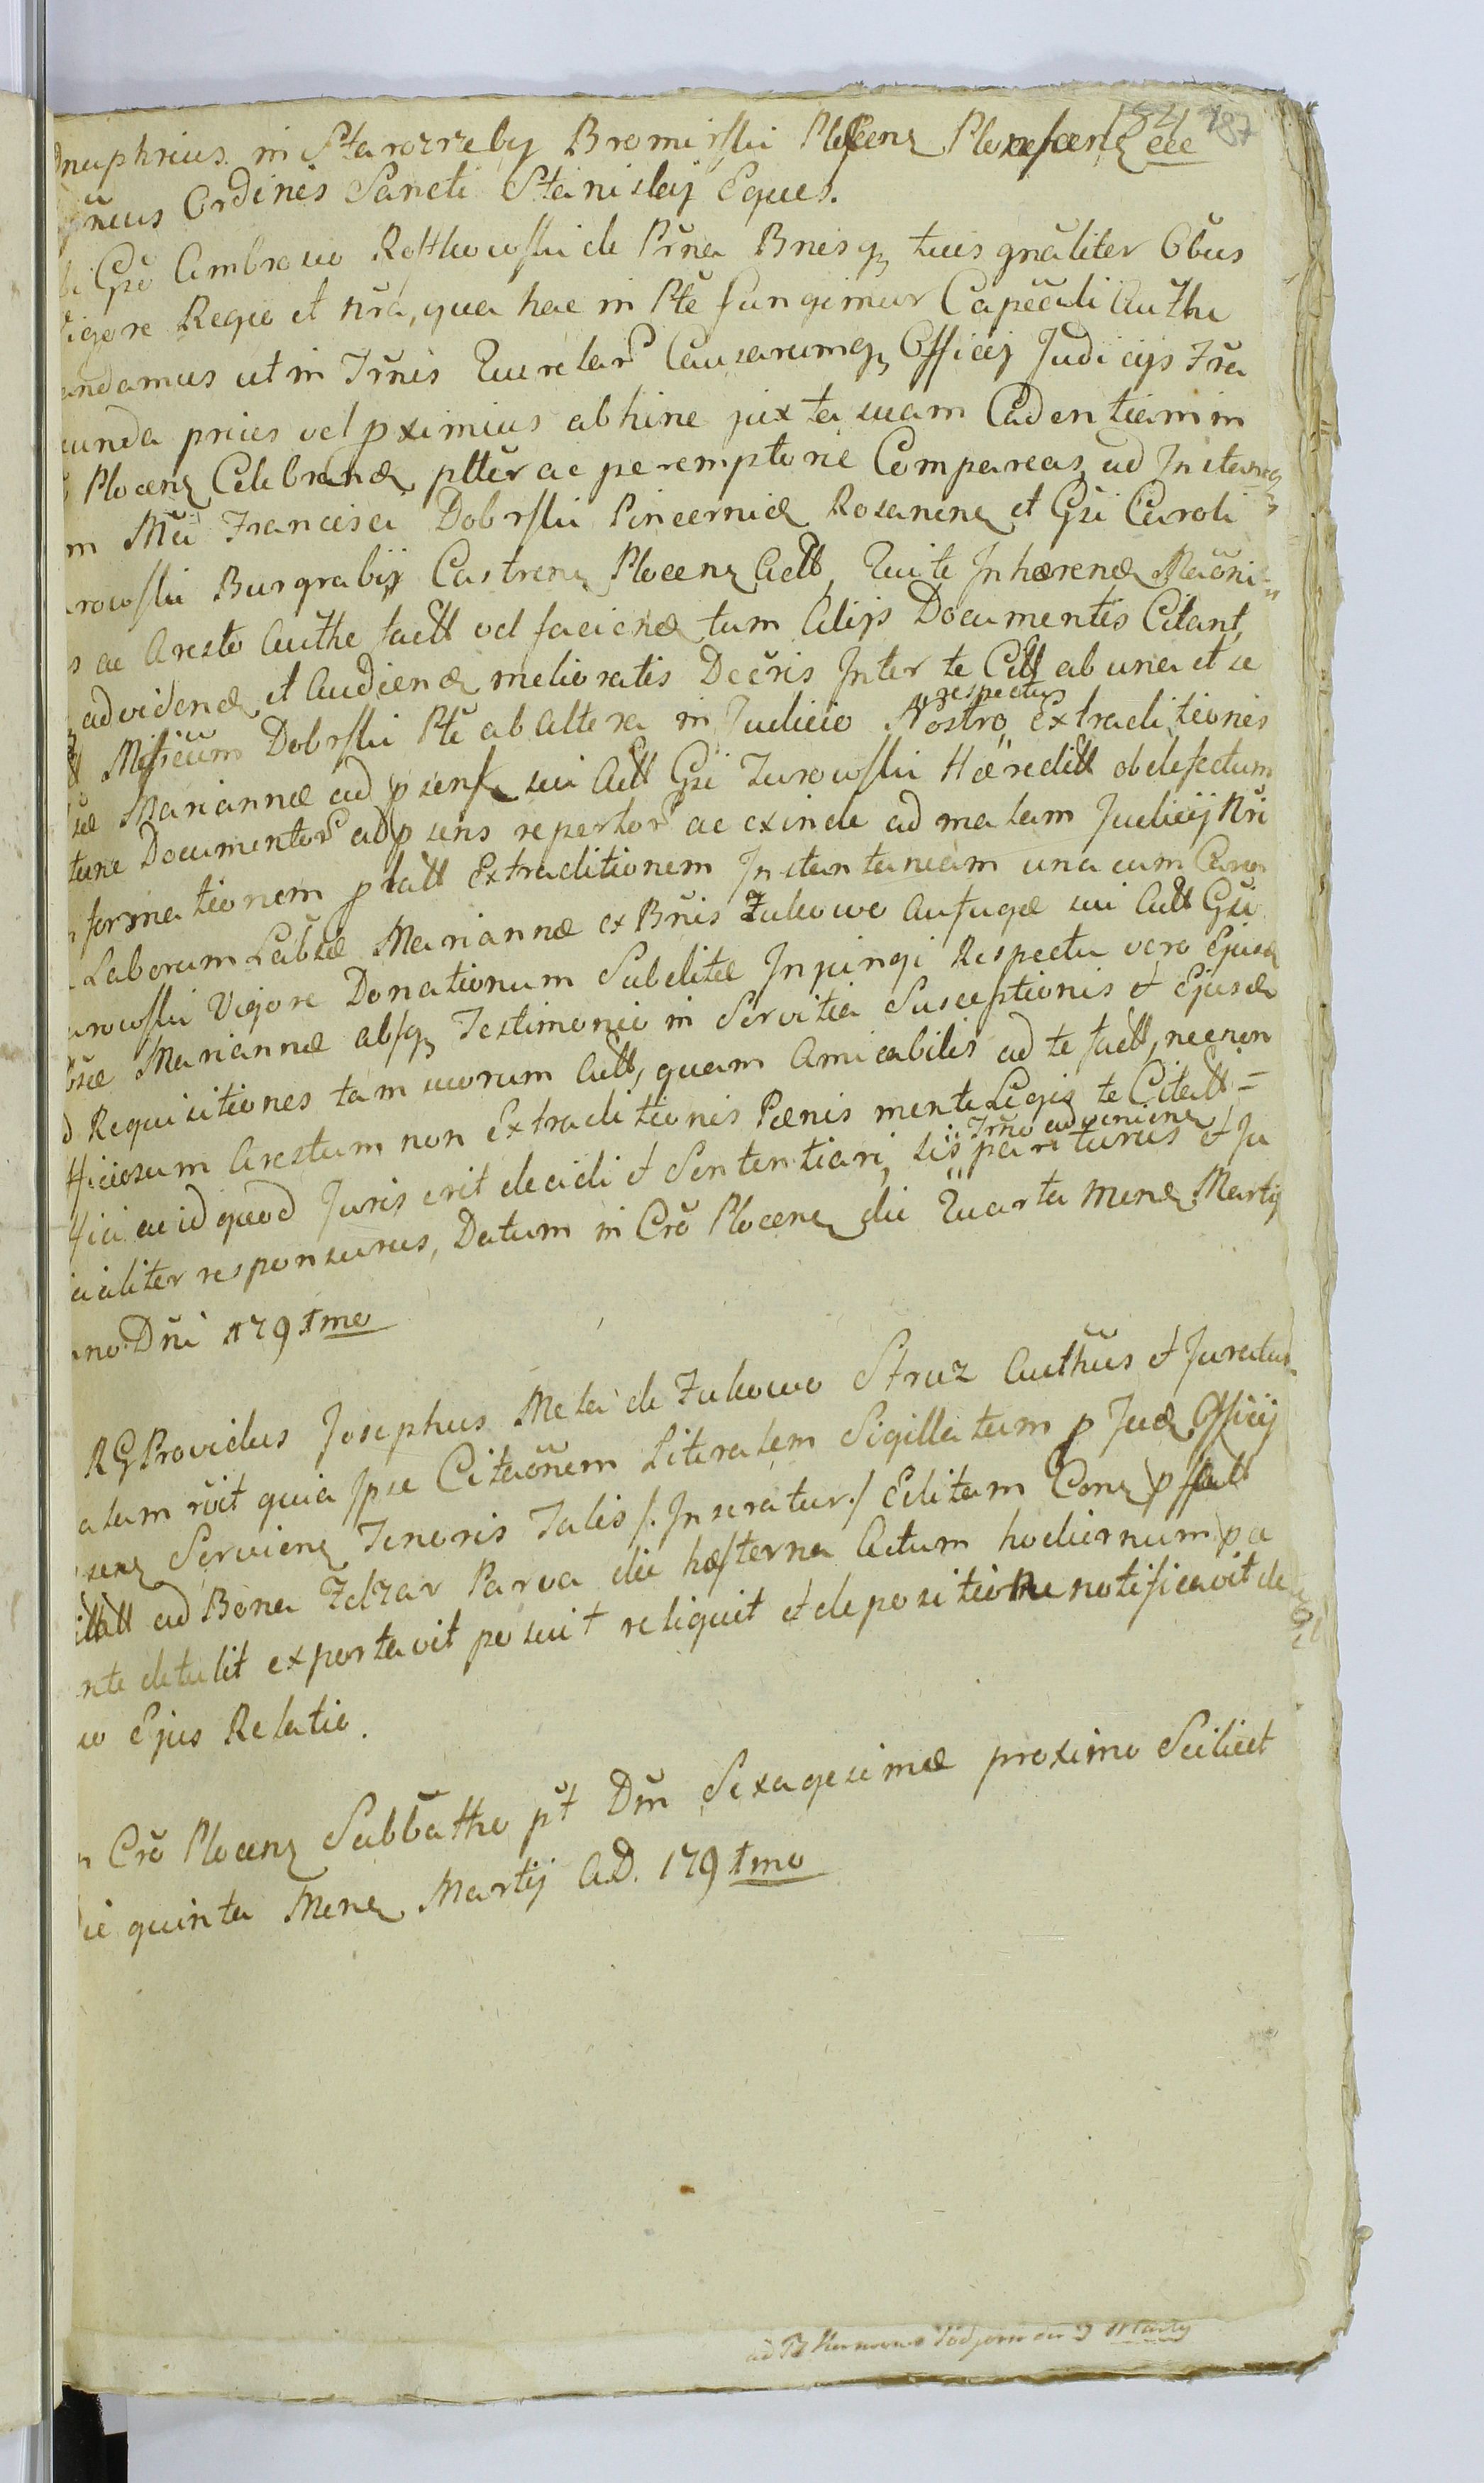 nuphrius in Starorzeby Bromirski Plocens Ploc eee 187
neus Ordinis Sancti Stanislaj Eques.
Gso Ambrosio Rostkowski de Prna Bnisq tuis gnaliter Obus
igore Regio et nra, qua hac in Pte fungimur Capeali Authe
andamus ut in Trnis Querelar Causarumq Officij Judicijs Tra
unda prius vel pximius abhinc juxta suam Cadentiam in
Plocens Celebrand, ptter ac peremptorie Compareas, ad Instang
m Mci Francisci Dobrski Pincernid Rozanens et Gsi Caroli
rowski Burgrabij Castrens Plocens Actt, Qui te Inhærend Maoni=
s ac Aresto Authe factt vel faciend tum Alijs Documentis Citant,
ad vidend et Audiend melioratis Decris Inter te Citt ab una et se
respectus
tt Mgficum Dobrski Pte ab altera in Judicio Nostro Extraditionis
sæ Mariannæ ad psens sui Actt Gsi Turowski Hæreditt ob defectum
tunc Documentor ad psens repertor ac exinde ad malam Judicij Nri
formationem platt Extraditionem Instantaneam una cum
Laborum Labsæ Mariannæ ex Bnis Zukowo Aufugæ sui Actt Gsi
urowski Vigore Donationum Subditæ Injungi Respectu vero Ejusd
bsæ Mariannæ absq Testimonio in Servitia Susceptionis et Ejusdem
d Requisitiones tam suorum Actt, quam Amicabilis ad te factt, necnon
fficiosum Arestum non Extraditionis Pænis mente Legis te Citatt =
Trno advenienz
ffici ac id quod Juris erit decidi et Sententiari, sis pariturus et Ju
icialiter responsurus, Datum in Cro Plocens die Quarta Mens Martij
no Dni 1791mo
RG Providus Josephus Mela de Zukowo Struz Authus et Juratus
atum rvit quia Ipse Citaonem Literalem Sigillatum p Jud Officij
sens Serviens Tenoris Talis /: Inseratur :/ Editam Cons p
ad Bona Zdzar Parva die hesterna Actum hodiernum pce
nte detulit exportavit posuit reliquit et de positione notificavit de
uo Ejus Relatio.
n Cro Plocens Sabbatho pt Dm Sexagesimæ proximo Scilicet
ie quinta Mens Martij A.D. 1791mo